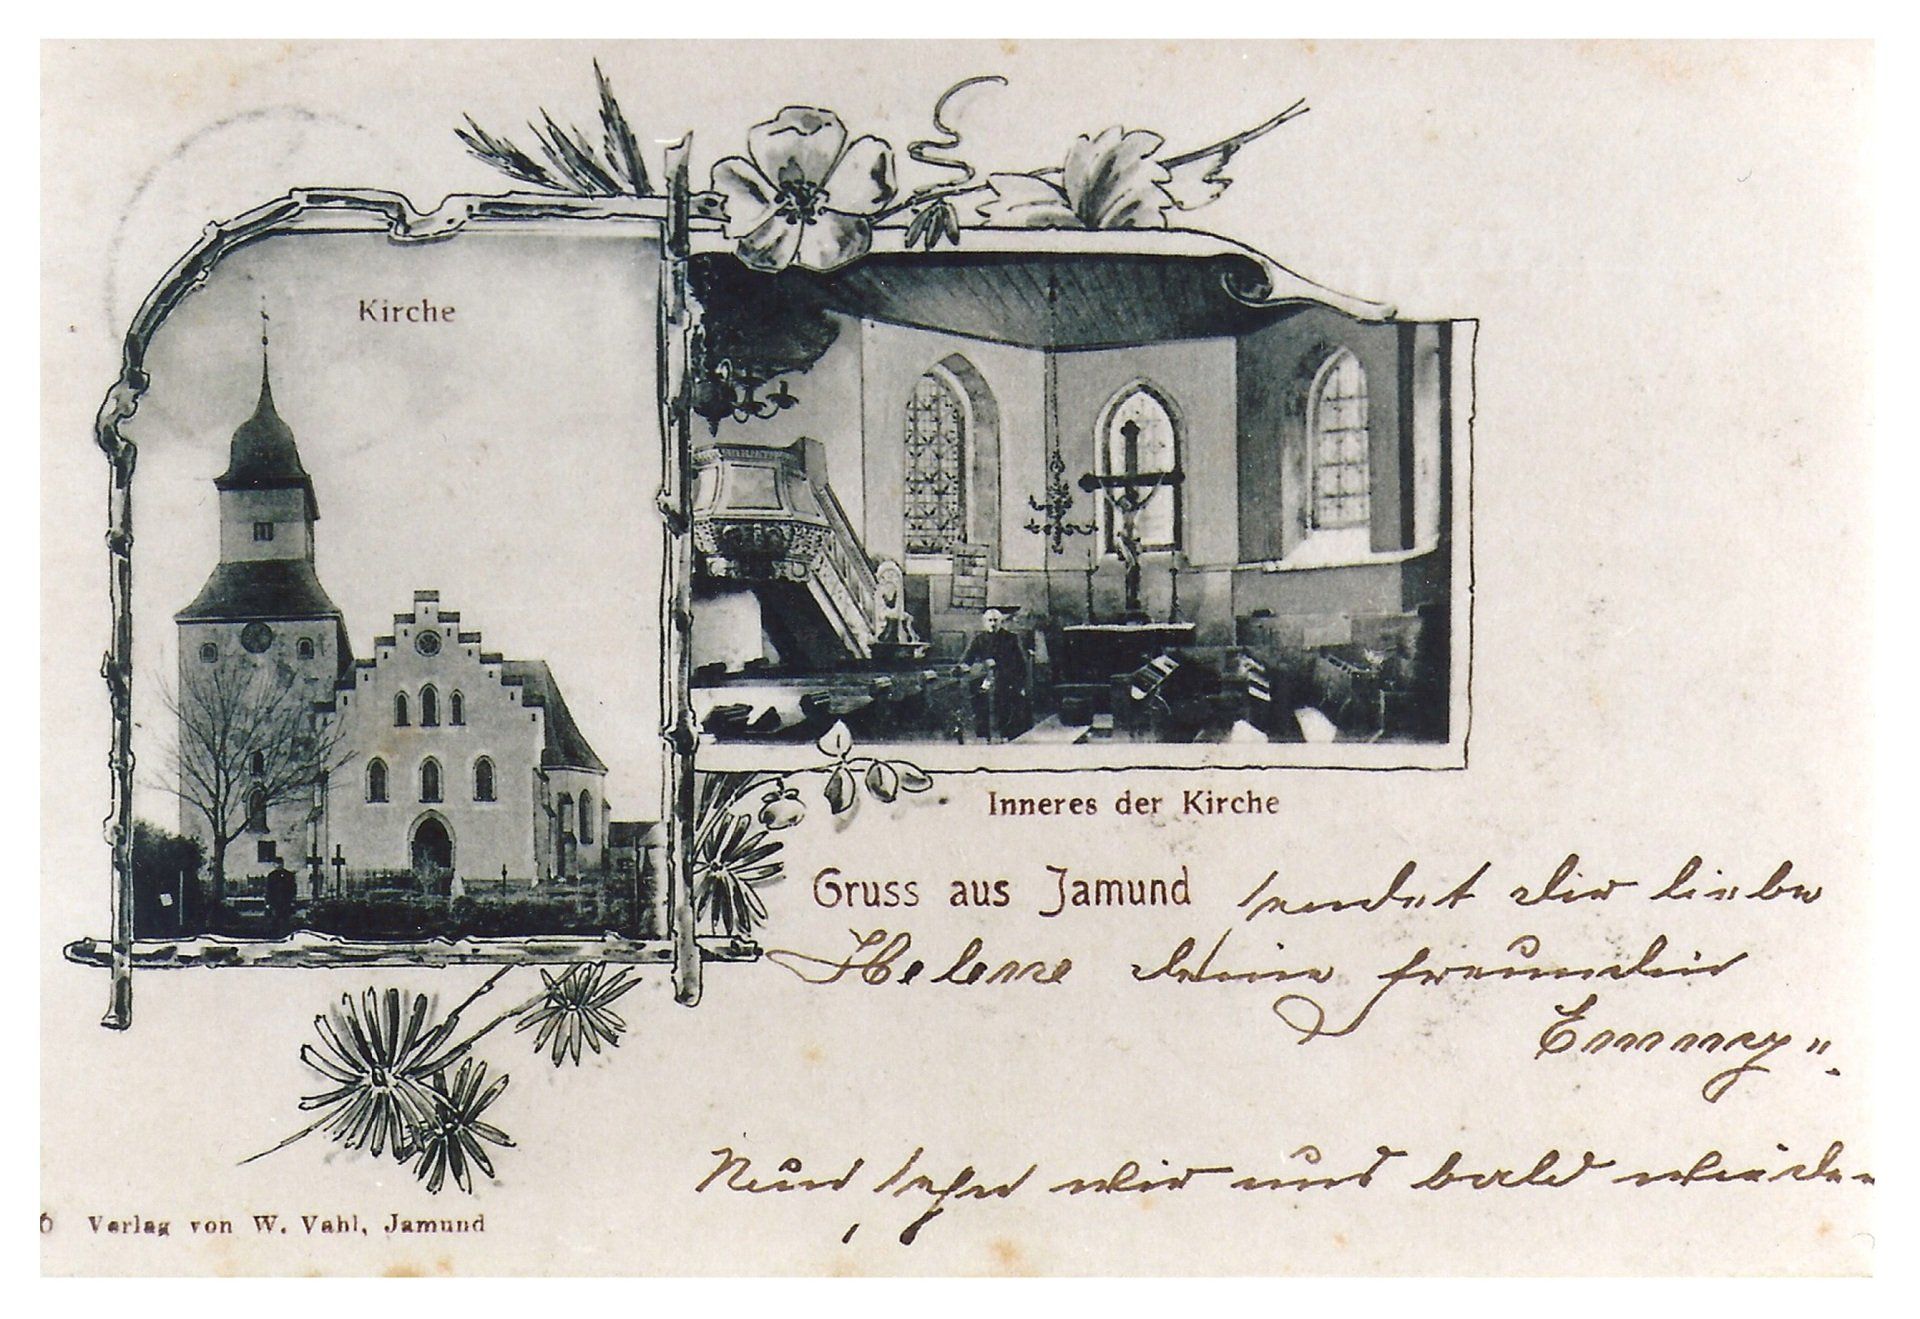 Kirche
Inneres der Kirche
Gruss aus Jamund sendet dir liebe
Helene deine freundin
Emmy
Nun sehn wir uns bald wieder
Verlag von W. Vahl, Jamund